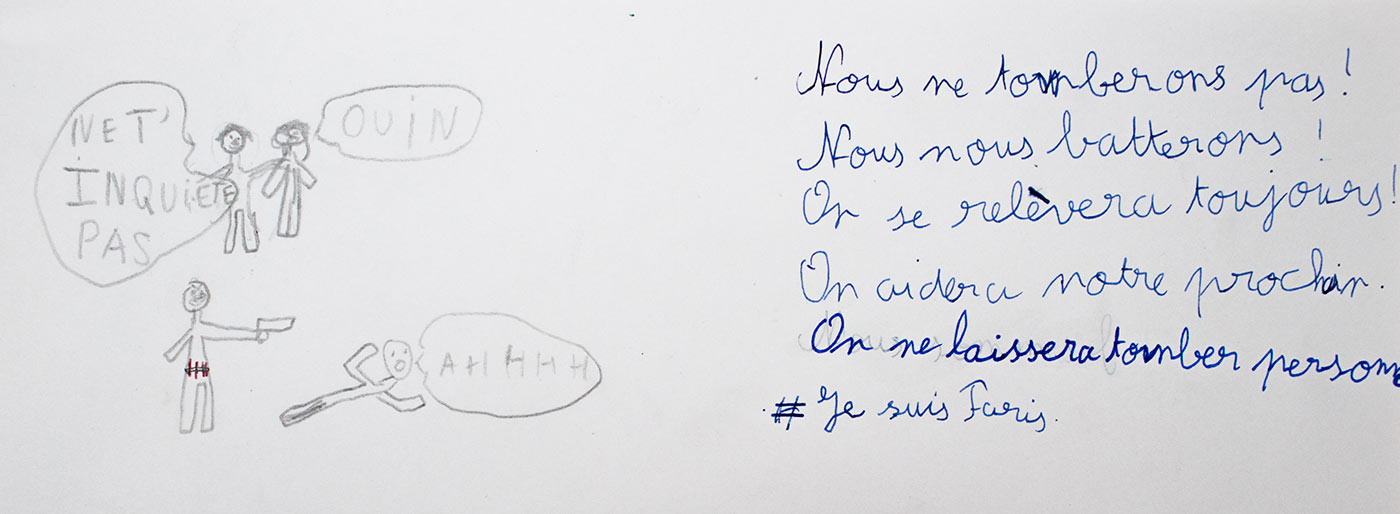 NE T'
INQUIÈTE
PAS
OUIN
AHHHH
Nous ne tomberons pas !
Nous nous batterons !
On se relèvera toujours !
On aidera notre prochain.
On ne laissera tomber personne
# Je suis Paris.